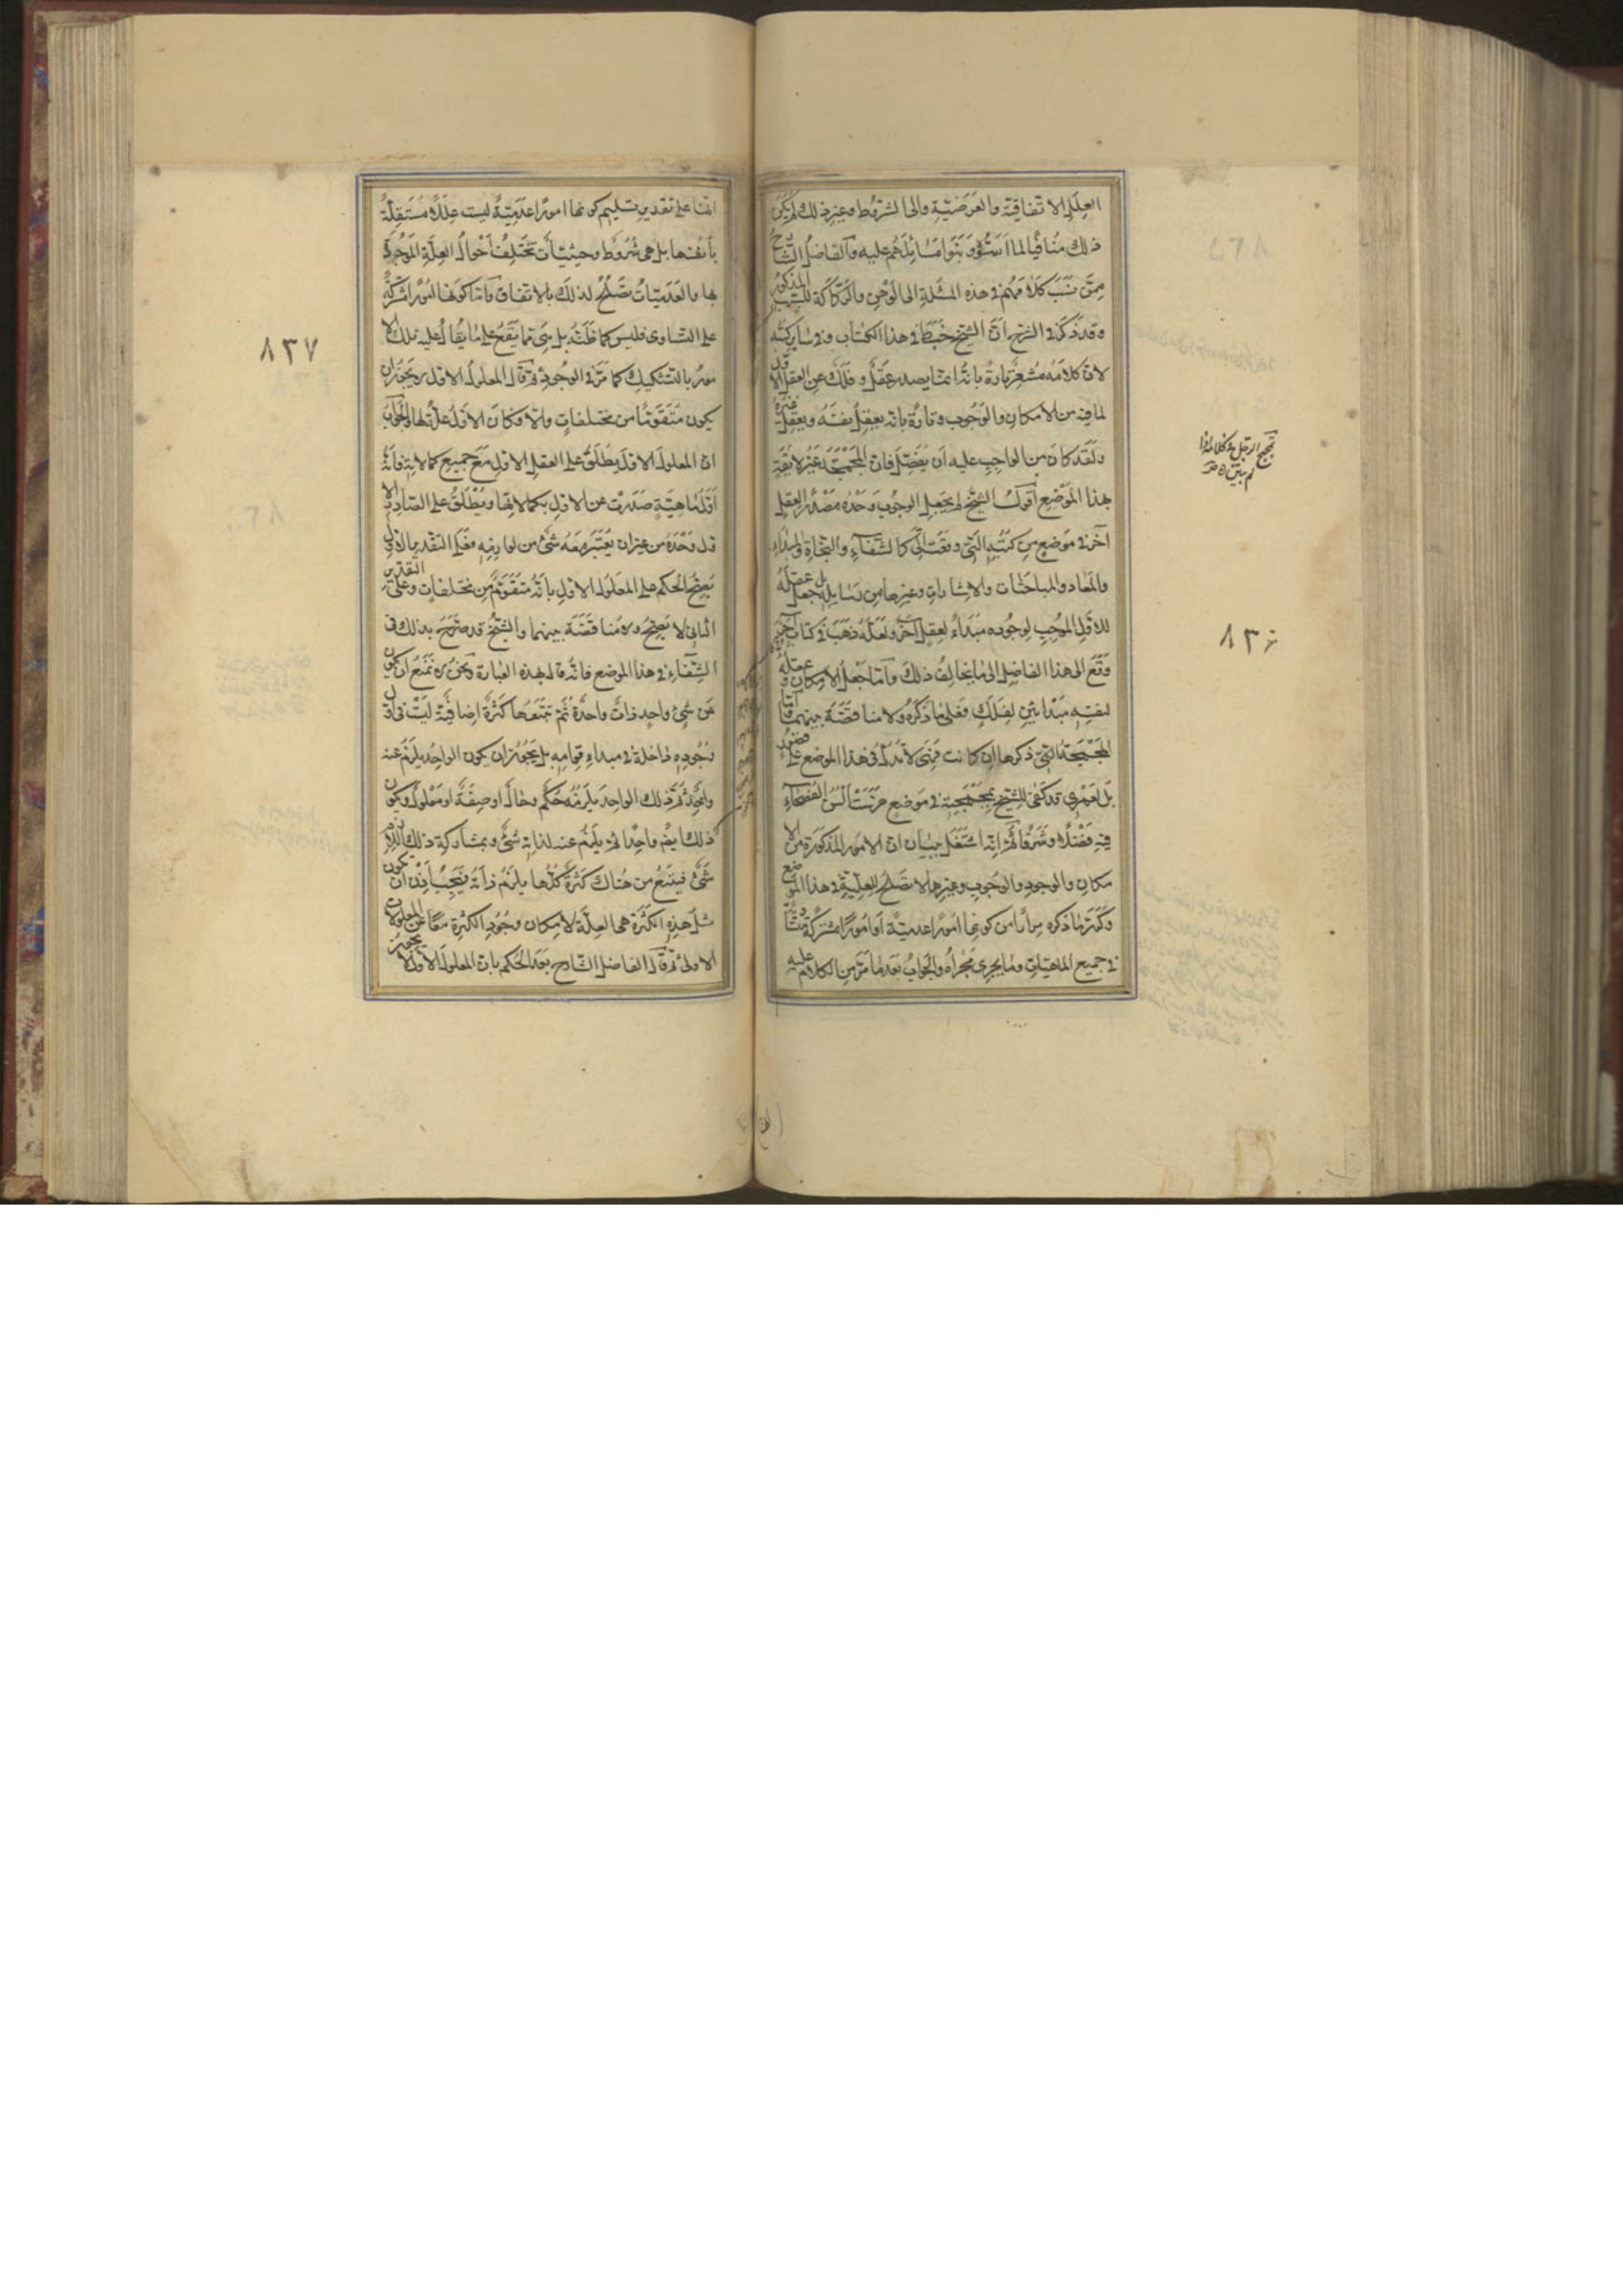 العلل الاتفاقية والعرضية والى الشروط وغير ذلك ولم يكن
ذلك منافيا لما اسسوه وبنوا مسائلهم عليه والفاضل الشارح
ممن نسب كلامهم في هذه المسئلة الى الوهن والركاكة للسبب المذكور
وقد ذكر في الشرح ان الشيخ خبط في هذا الكتاب وفي سائر كتبه
لان كلامه مشعر تارة بانه انما يصدر عقل وفلك عن العقل الاول
لما فيه من الامكان والوجوب وتارة بانه يعقل نفسه ويعقل غيره
ولقد كان من الواجب عليه ان يفصل فان المجمجة غير لايقة
بهذا الموضع اقول الشيخ لم يجعل الوجوب وحده مصدر العقل
آخر في موضع من كتبه التي وقعت الي كالشفاء والنجاة والمبداء
والمعاد والمباحثات والاشارات وغيرها من رسايله بل جعل عقله
للاول الموجب لوجوده مبداء لعقل آخر ولعله ذهب في كتاب آخر
وقع الى هذا الفاضل الى ما يخالف ذلك واما جعل الامكان و عقله
لنفسه مبدأين لفلك فعلى ما ذكره ولا مناقضة بينهما واما
المجمجة التي ذكرها ان كانت فهي لا تدل في هذا الموضع على قصور
بل لعمري قد كفى للشيخ بمجمجة في موضع خرست ألسن الفصحاء
فيه فضلا وشرفا ثم انه اشتغل ببيان ان الامور المذكورة من الا
مكان والوجود والوجوب وغيرها لا تصلح للعلية في هذا الموضع
وكرر ما ذكره مرارا من كونها امورا عدمية او امورا مشتركة
في جميع الماهيات وما يجري مجراه والجواب بعد ما مر من الكلام عليه
تمجمج الرجل في كلامه اذا
لم يبين
٨٣٦
انها على تقدير تسليم كونها امورا عدمية ليست عللا مستقلة
بأنفسها بل هي شروط وحيثيات تختلف أحوال العلة الموجدة
بها والعدميات تصلح لذلك بالاتفاق واما كونها امورا مشتركة
على التساوي فليس كما ظنه بل هي مما يقع على ما يقال عليه تلك الا
مور بالتشكيك كما مر في الوجود ثم قال المعلول الاول يجوز ان
يكون متقوما من مختلفات والا وكان الاول علة لها والجواب
ان المعلول الاول يطلق على العقل الاول مع جميع كمالاته فانه
أول ماهية صدرت عن الاول بكمالاتها ويطلق على الصادر الا
ول وحده من غير ان يعتبر معه شئ من لوازمه فعلى التقدير الاول
يصح الحكم على المعلول الاول بانه متقوم من مختلفات وعلى التقدير
الثاني لا يصح ولا مناقضة بينهما والشيخ قد صرح بذلك في
الشفاء في هذا الموضع فانه قال بهذه العبارة ونحن لا نمنع ان يكون
عن شئ واحد ذات واحدة ثم تتبعها كثرة اضافية ليست في اول
وجوده داخلة في مبداء قوامه بل يجوز ان يكون الواحد يلزم عنه
واحد ثم ذلك الواحد يلزمه حكم وحال او صفة او معلول ويكون
ذلك ايضا واحدا ثم يلزم عنه لذاته شئ وبمشاركة ذلك اللازم
شئ فيتبع من هناك كثرة كلها يلزم ذاته فيجب اذن ان تكون
مثل هذه الكثرة هي العلة لامكان وجود الكثرة معا عن المعلولات
الاولى ثم قال الفاضل الشارح بعد الحكم بان المعلول الاول لا يجوز
٨٣٧